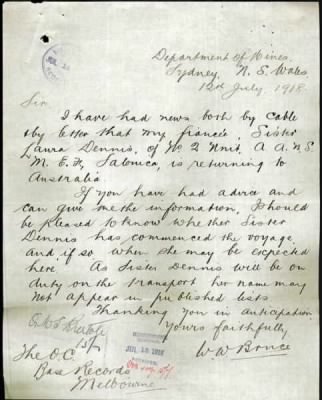 Department of Mines.
Sydney, N. S. Wales
12th July, 1918.
Sir
I have had news both by cable
& by letter that my fiancée, Sister
Laura Dennis, of No 2 Unit, A. A. N. S
M. E. F, Salonica, is returning to
Australia.
If you have had advice and
can give me the information, I should
be pleased to know whether Sister
Dennis has commenced the voyage
and if so when she may be expected
here. As Sister Dennis will be on
duty on the transport her name may
not appear in published lists.
Thanking you in anticipation
Yours faithfully
W. W. Bruce
The O.C.
Base Records
Melbourne
JUL 15 1918